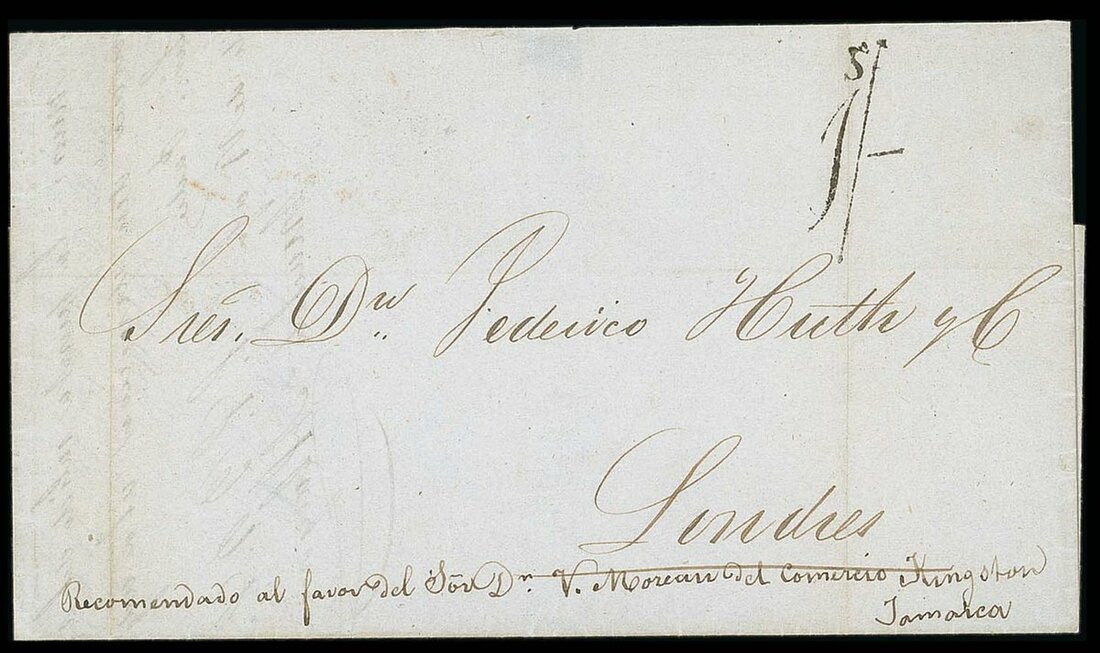 1/-
Sres. Dn. Federico Huth y C
Londres
Recomendado al favor del Sor Dn. V. Morean del Comercio Kingston
Jamaica